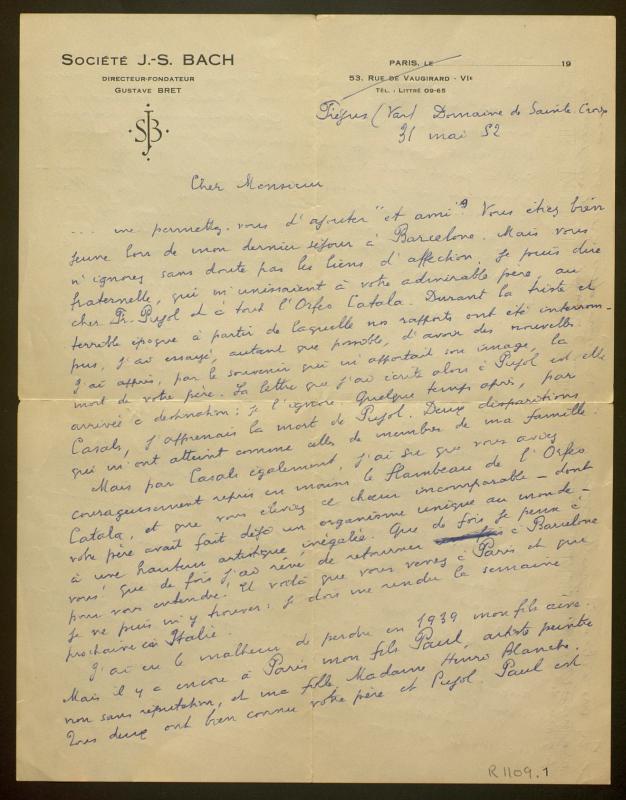 SOCIÉTÉ J.-S. BACH
DIRECTEUR-FONDATEUR
GUSTAVE BRET
SJB
PARIS, LE 19
53, RUE DE VAUGIRARD - VIe
TÉL. : LITTRÉ 09-65
(Var) Domaine de Sainte Croix
31 mai 52
Cher Monsieur
... me permettez-vous d'ajouter "et ami"? Vous étiez bien
jeune lors de mon dernier séjour à Barcelone. Mais vous
n'ignorez sans doute pas les liens d'affection, je puis dire
fraternelle, qui m'unissaient à votre admirable père, au
cher Fr. Pujol et à tout l'Orfeo Catala. Durant la triste et
terrible époque à partir de laquelle nos rapports ont été interrom-
pus, j'ai essayé, autant que possible, d'avoir des nouvelles.
J'ai appris, par le souvenir qui m'apportait son image, la
mort de votre père. La lettre que j'ai écrite alors à Pujol est elle
arrivée à destination: je l'ignore. Quelque temps après, par
Casals, j'apprenais la mort de Pujol. Deux disparitions
qui m'ont atteint comme celles de membres de ma famille.
Mais par Casals également, j'ai su que vous aviez
courageusement repris en mains le flambeau de l'Orfeo
Catala, et que vous éleviez ce chœur incomparable - dont
votre père avait fait déjà un organisme unique au monde -
à une hauteur artistique inégalée. Que de fois, je peux à
vous que de fois j'ai rêvé de retourner à Barcelone
pour vous entendre! Et voilà que vous venez à Paris et que
je ne puis m'y trouver: je dois me rendre la semaine
prochaine en Italie.
J'ai eu le malheur de perdre en 1939 mon fils aîné.
Mais il y a encore à Paris mon fils Paul, artiste peintre
non sans réputation, et ma fille Madame Henri Blanche.
Tous deux ont bien connu votre père et Pujol. Paul est
R1109.1